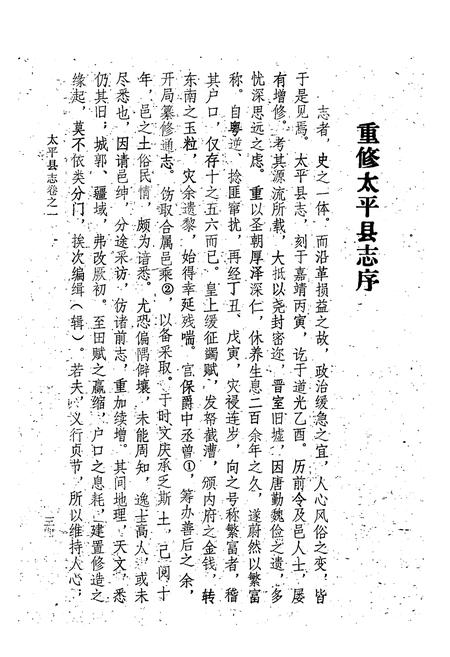 重修太平县志序
志者，史之一体。而沿革损益之故，政治缓急之宜，人心风俗之变，皆
于是见焉。太平县志，刻于嘉靖丙寅，讫于道光乙酉。历前令及邑人士，屡
有增修。考其源流所载，大抵以尧封密迩，晋室旧墟，因唐勤魏俭之遗，多
忧深思远之虑。重以圣朝厚泽深仁，休养生息二百余年之久，遂蔚然以繁富
称。自粤逆、捻匪窜扰，再经丁丑、戊寅，灾祲连岁，向之号称繁富者，稽
其户口，仅存十之五六而已。皇上缓征蠲赋，发帑截漕，颁内府之金钱，转
东南之玉粒，灾余遗黎，始得幸延残喘。宫保爵中丞曾①，筹办善后之余，
开局纂修通志。饬取合属邑乘②，以备采取。于时文庆承乏斯土，已阅十
年，邑之土俗民情，颇为谙悉。尤恐偏隅僻壤，未能周知，逸士高人，或未
尽悉也，因请邑绅，分途采访，仿诸前志，重加续增。其间地理、天文，悉
仍其旧；城郭、疆域，弗改厥初。至田赋之赢缩，户口之息耗，建置修造之
缘起，莫不依类分门，挨次编缉（辑）。若夫义行贞节，所以维持人心，
太平县志卷之一
三